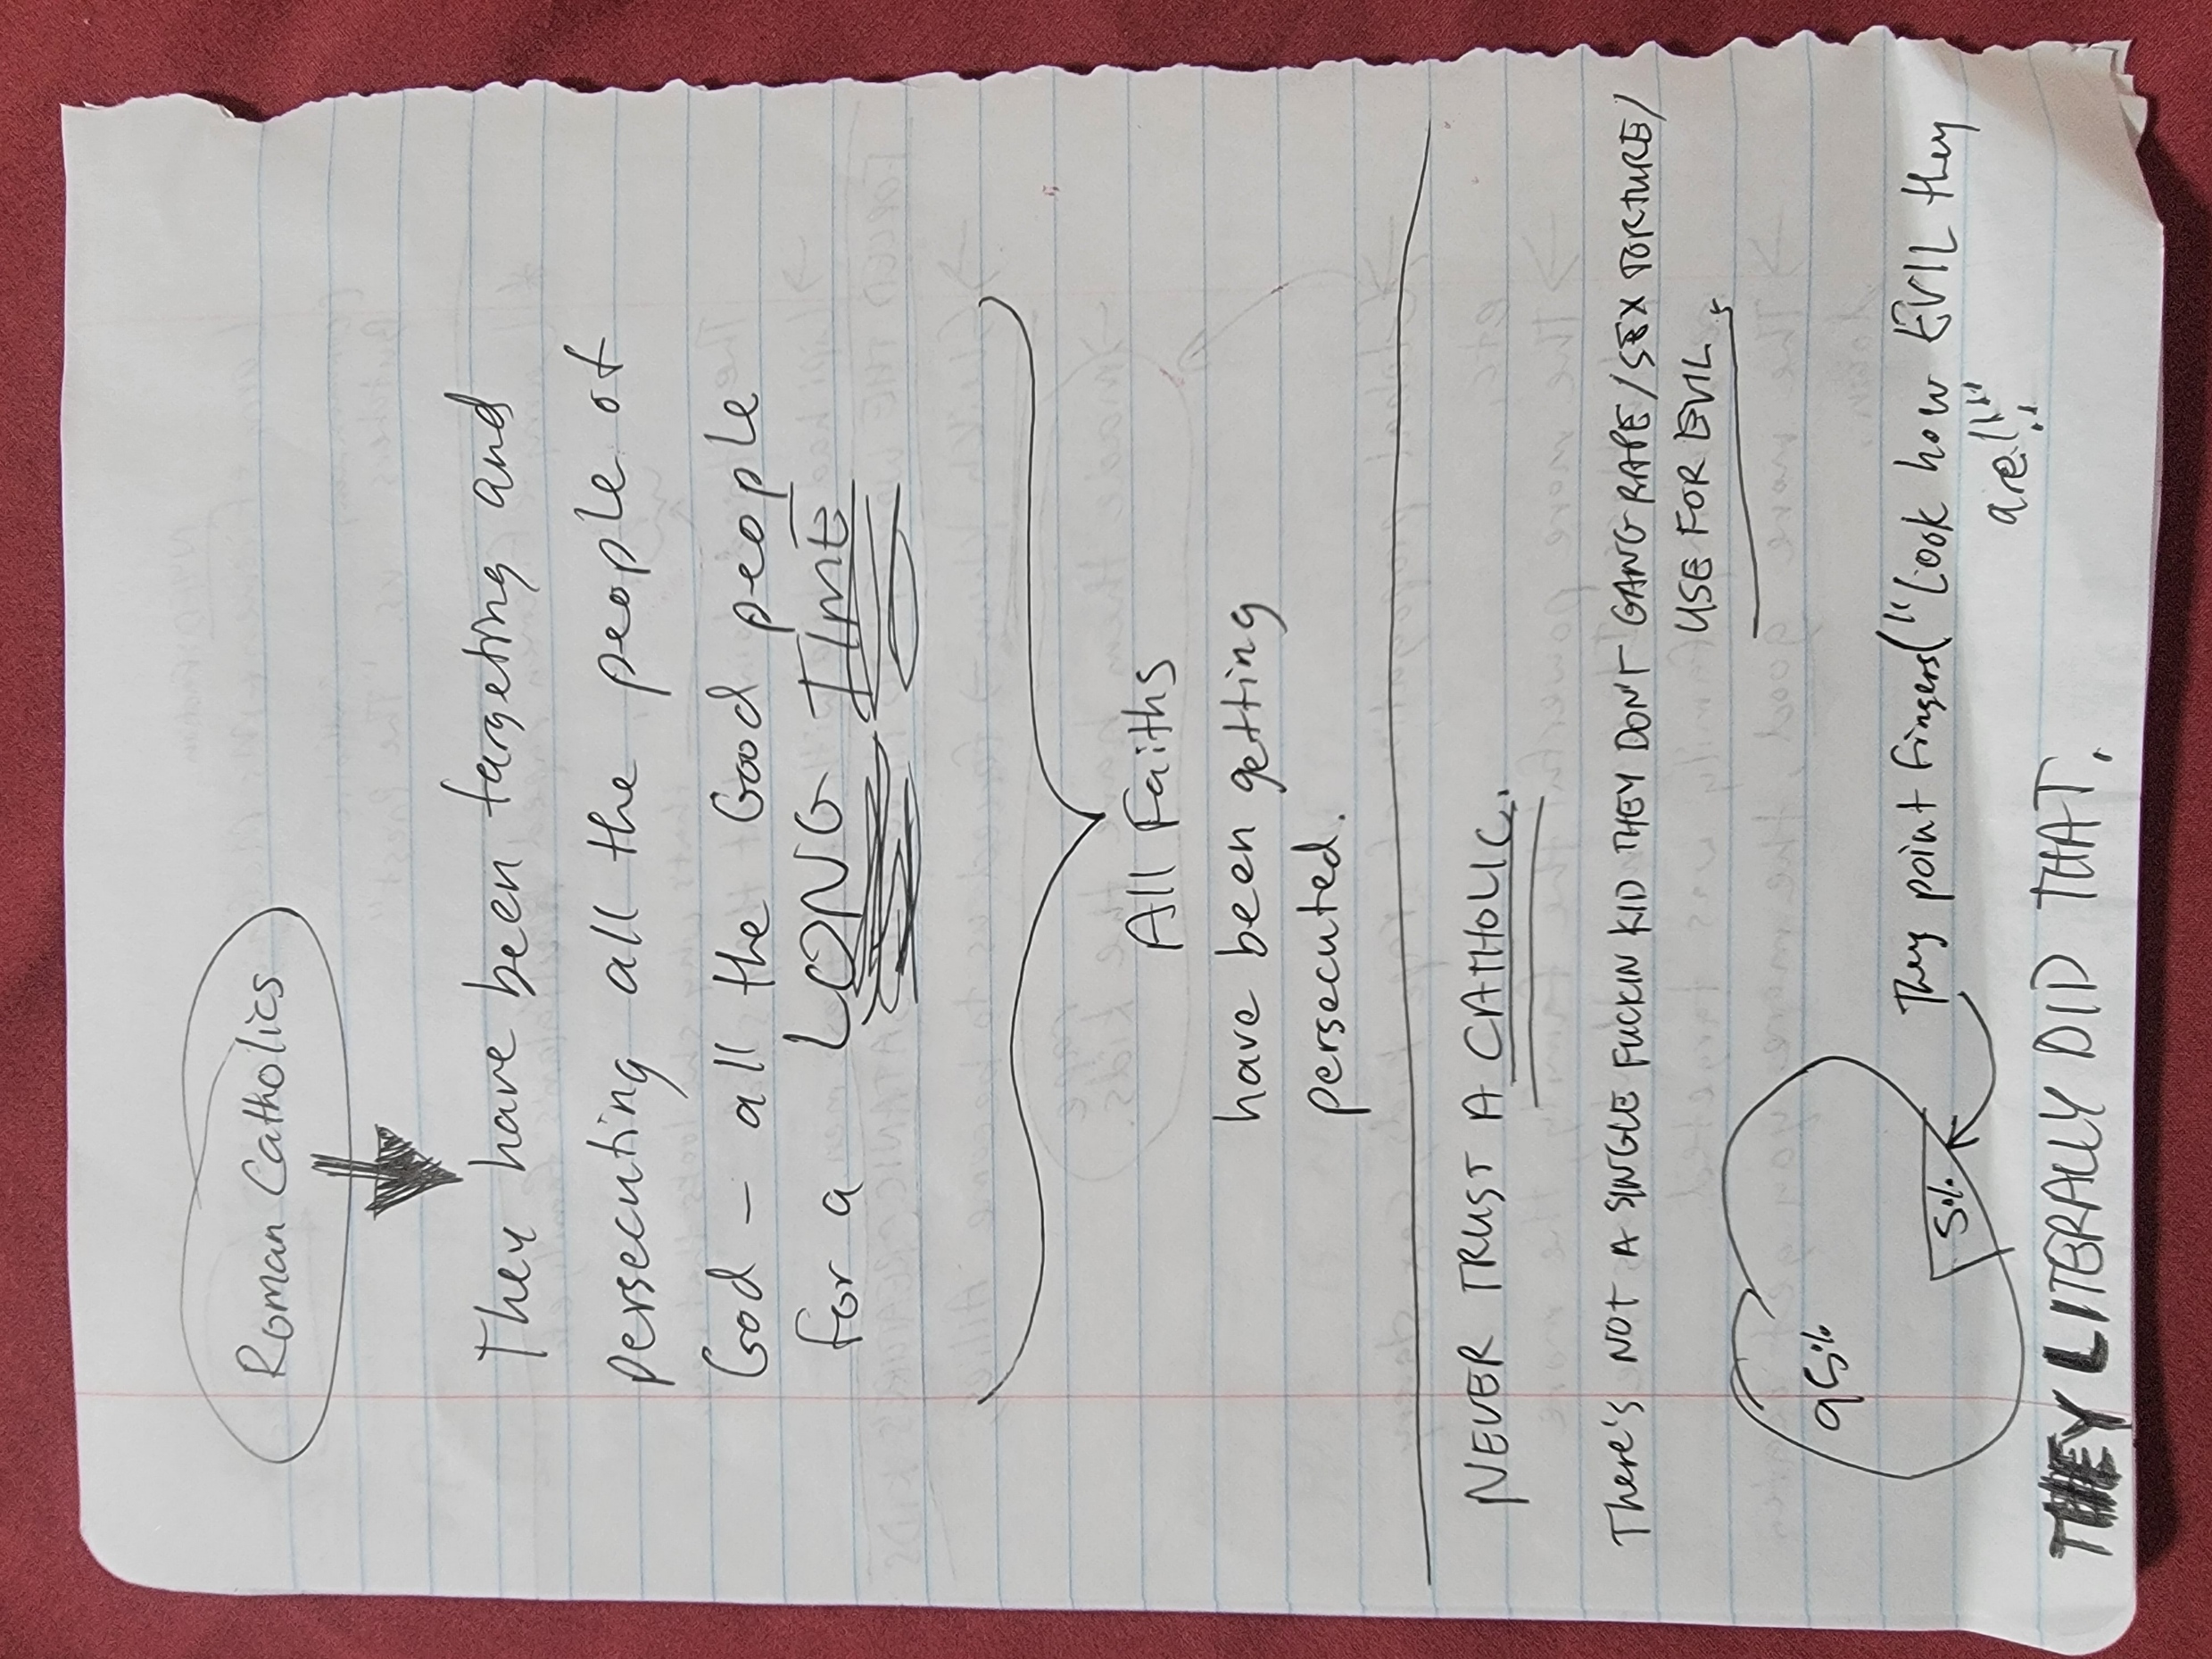 Roman Catholics
They have been targeting and
persecuting all the people of
God – all the Good people
for a LONG TIME
All Faiths
have been getting
persecuted.
NEVER TRUST A CATHOLIC.
There's NOT A SINGLE FUCKIN KID THEY DON'T GANG RAPE/SEX TORTURE/
USE FOR EVIL,
95%
5%
They point fingers ("Look how EVIL they
are!!!!"
THEY LITERALLY DID THAT.